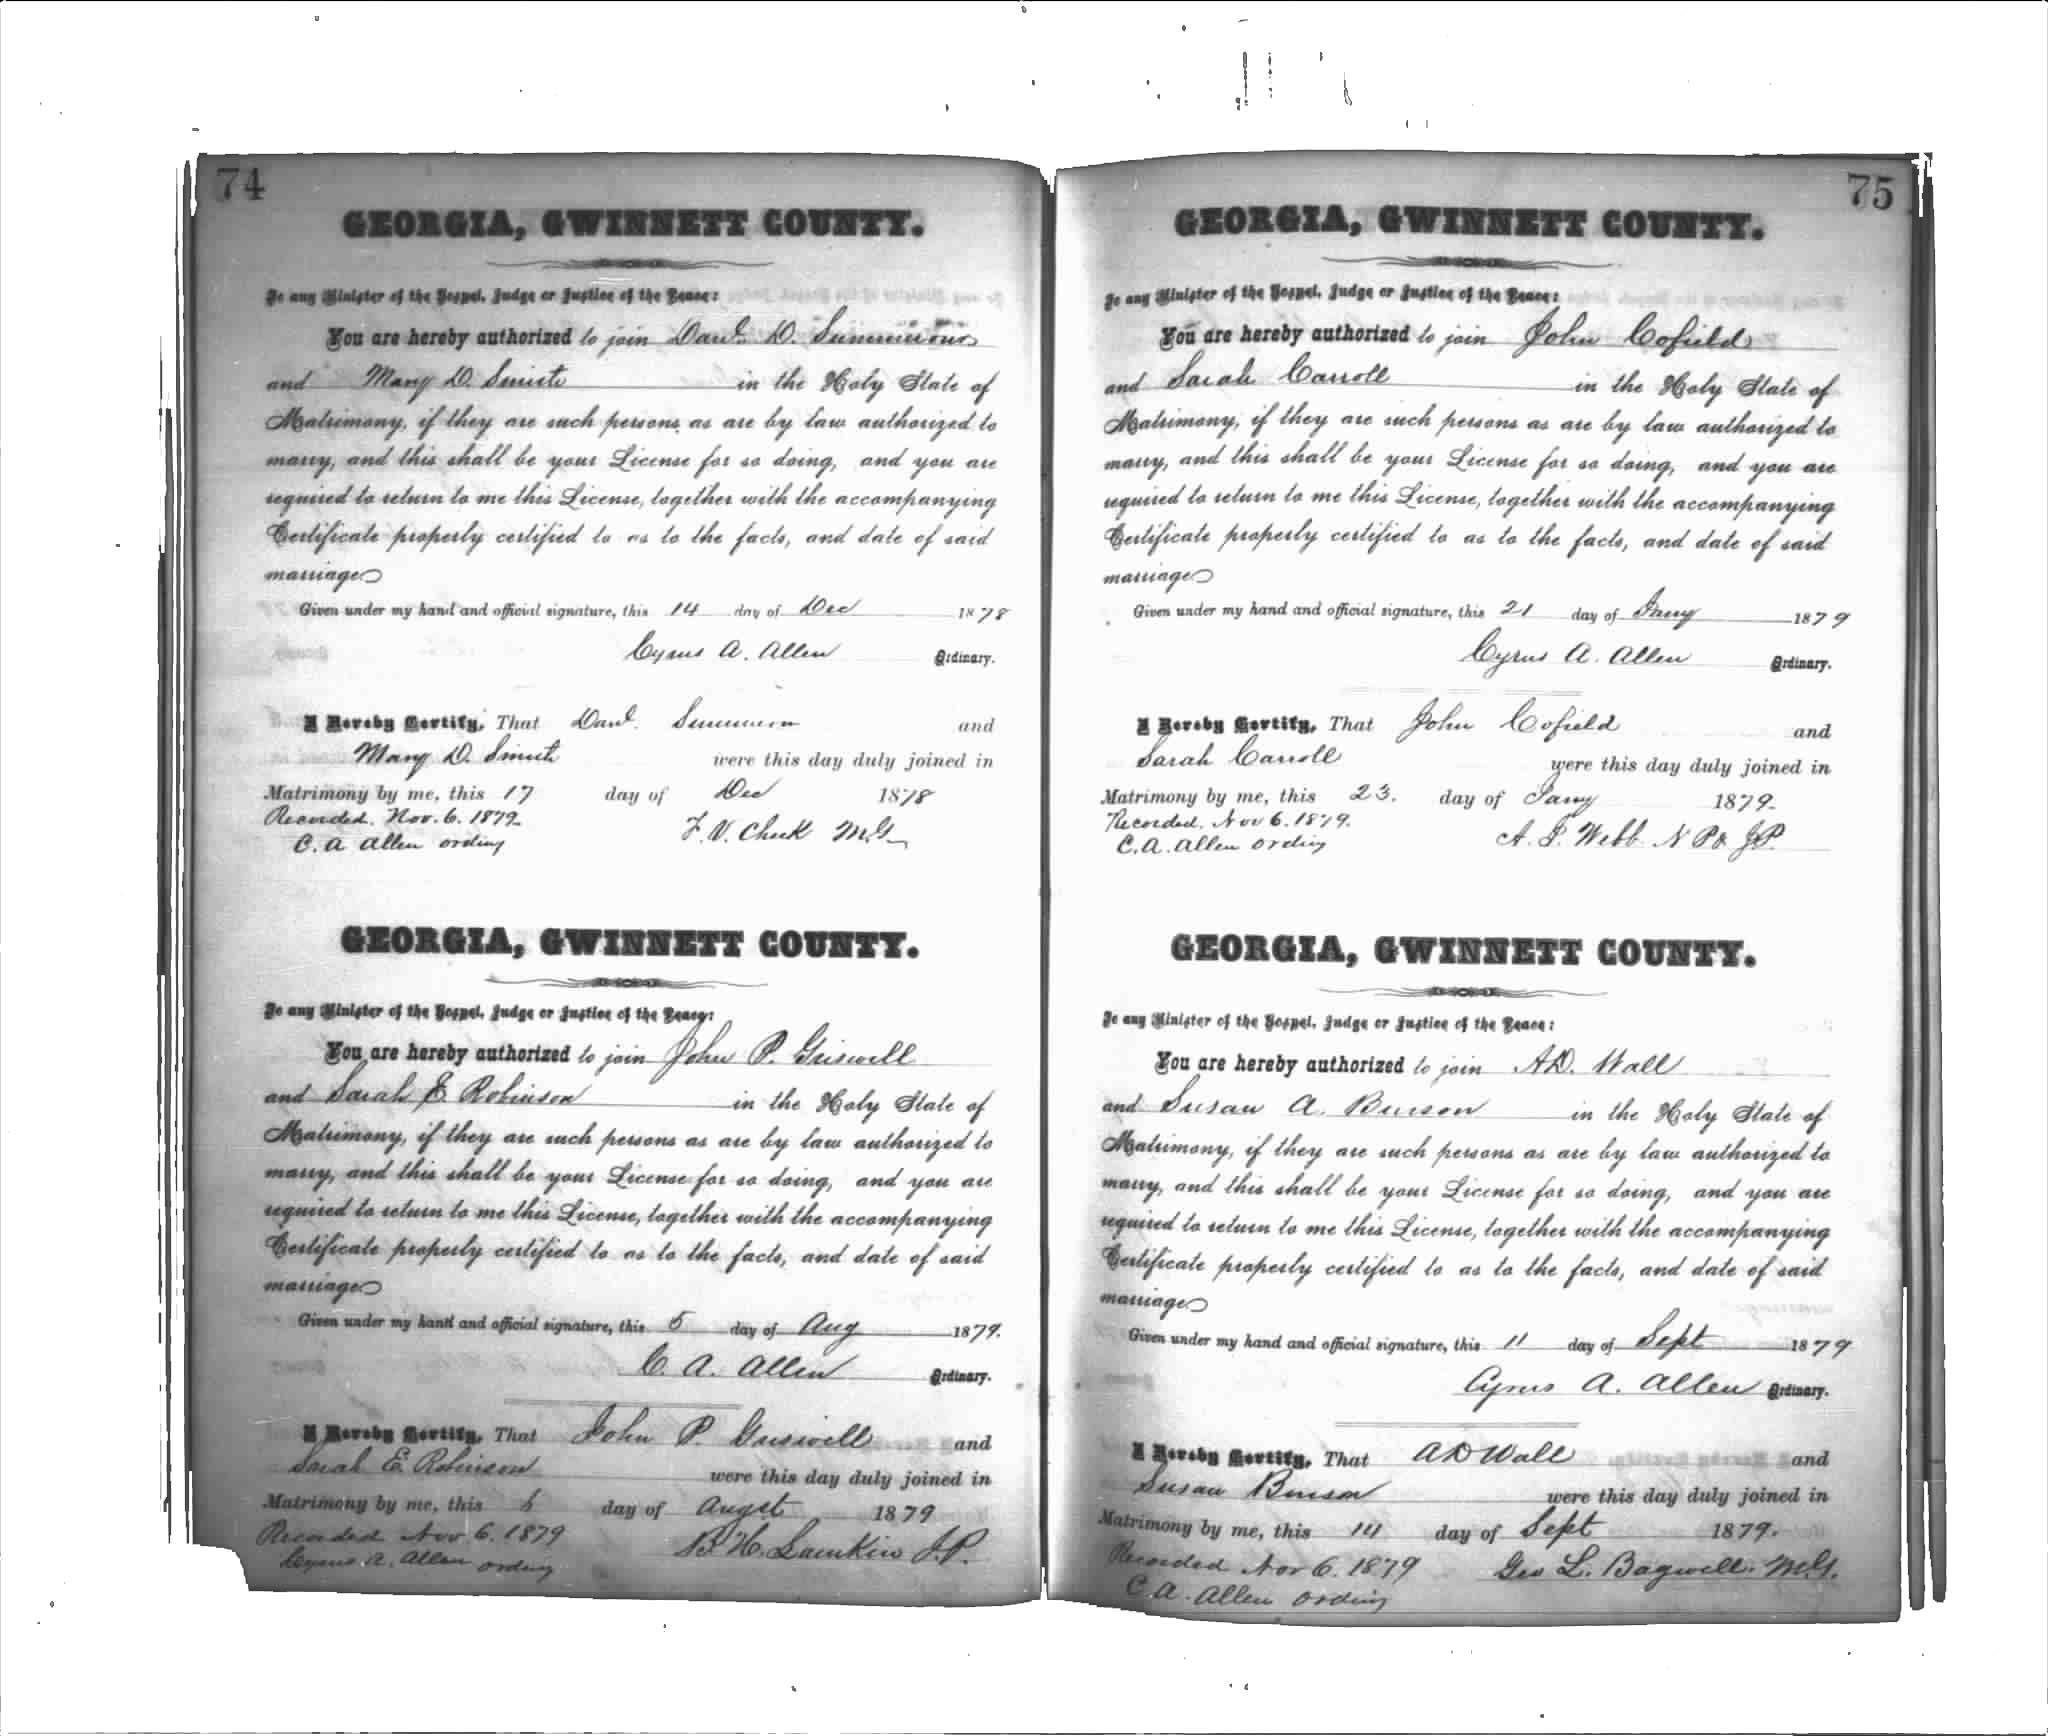 74
GEORGIA, GWINNETT COUNTY.
To any Minister of the Gospel, Judge or Justice of the Peace:
You are hereby authorized to join Danl. D. Summerour
and Mary D. Smith in the Holy State of
Matrimony, if they are such persons as are by law authorized to
marry, and this shall be your License for so doing, and you are
required to return to me this License, together with the accompanying
Certificate properly certified to as to the facts, and date of said
marriage
Given under my hand and official signature, this 14 day of Dec 1878
Cyrus A. Allen Ordinary.
I Hereby Certify, That Danl. and
Mary D. Smith were this day duly joined in
Matrimony by me, this 17 day of Dec 1878
Recorded. Nov. 6. 1879. F. V. Cheek M.G.
C. A Allen ordiny
GEORGIA, GWINNETT COUNTY.
To any Minister of the Gospel, Judge or Justice of the Peace:
You are hereby authorized to join John P. Griswell
and Sarah E Robinson in the Holy State of
Matrimony, if they are such persons as are by law authorized to
marry, and this shall be your License for so doing, and you are
required to return to me this License, together with the accompanying
Certificate properly certified to as to the facts, and date of said
marriage
Given under my hand and official signature, this 5 day of Aug 1879.
C. A. Allen Ordinary.
I Hereby Certify, That John P. Griswell and
Sarah E. Robinson were this day duly joined in
Matrimony by me, this day of Augst 1879
Recorded Nov 6. 1879 B. H. Lamkin J.P.
Cyrus A. Allen ordiny
75
GEORGIA, GWINNETT COUNTY.
To any Minister of the Gospel, Judge or Justice of the Peace:
You are hereby authorized to join John Cofield
and Sarah Carroll in the Holy State of
Matrimony, if they are such persons as are by law authorized to
marry, and this shall be your License for so doing, and you are
required to return to me this License, together with the accompanying
Certificate properly certified to as to the facts, and date of said
marriage
Given under my hand and official signature, this 21 day of Jany 1879
Cyrus A. Allen Ordinary.
I Hereby Certify, That John Cofield and
Sarah Carroll were this day duly joined in
Matrimony by me, this 23. day of Jany 1879.
Recorded. Nov 6. 1879. A. J. Webb N P & J.P.
C. A. Allen ordiny
GEORGIA, GWINNETT COUNTY.
To any Minister of the Gospel, Judge or Justice of the Peace:
You are hereby authorized to join A D. Wall
and Susan A. Burson in the Holy State of
Matrimony, if they are such persons as are by law authorized to
marry, and this shall be your License for so doing, and you are
required to return to me this License, together with the accompanying
Certificate properly certified to as to the facts, and date of said
marriage
Given under my hand and official signature, this 11 day of Sept 1879
Cyrus A. Allen Ordinary.
I Hereby Certify, That A D Wall and
Susan Burson were this day duly joined in
Matrimony by me, this 14 day of Sept 1879.
Recorded Nov 6. 1879 Geo L. Bagwell. M.G.
C. A. Allen ordiny